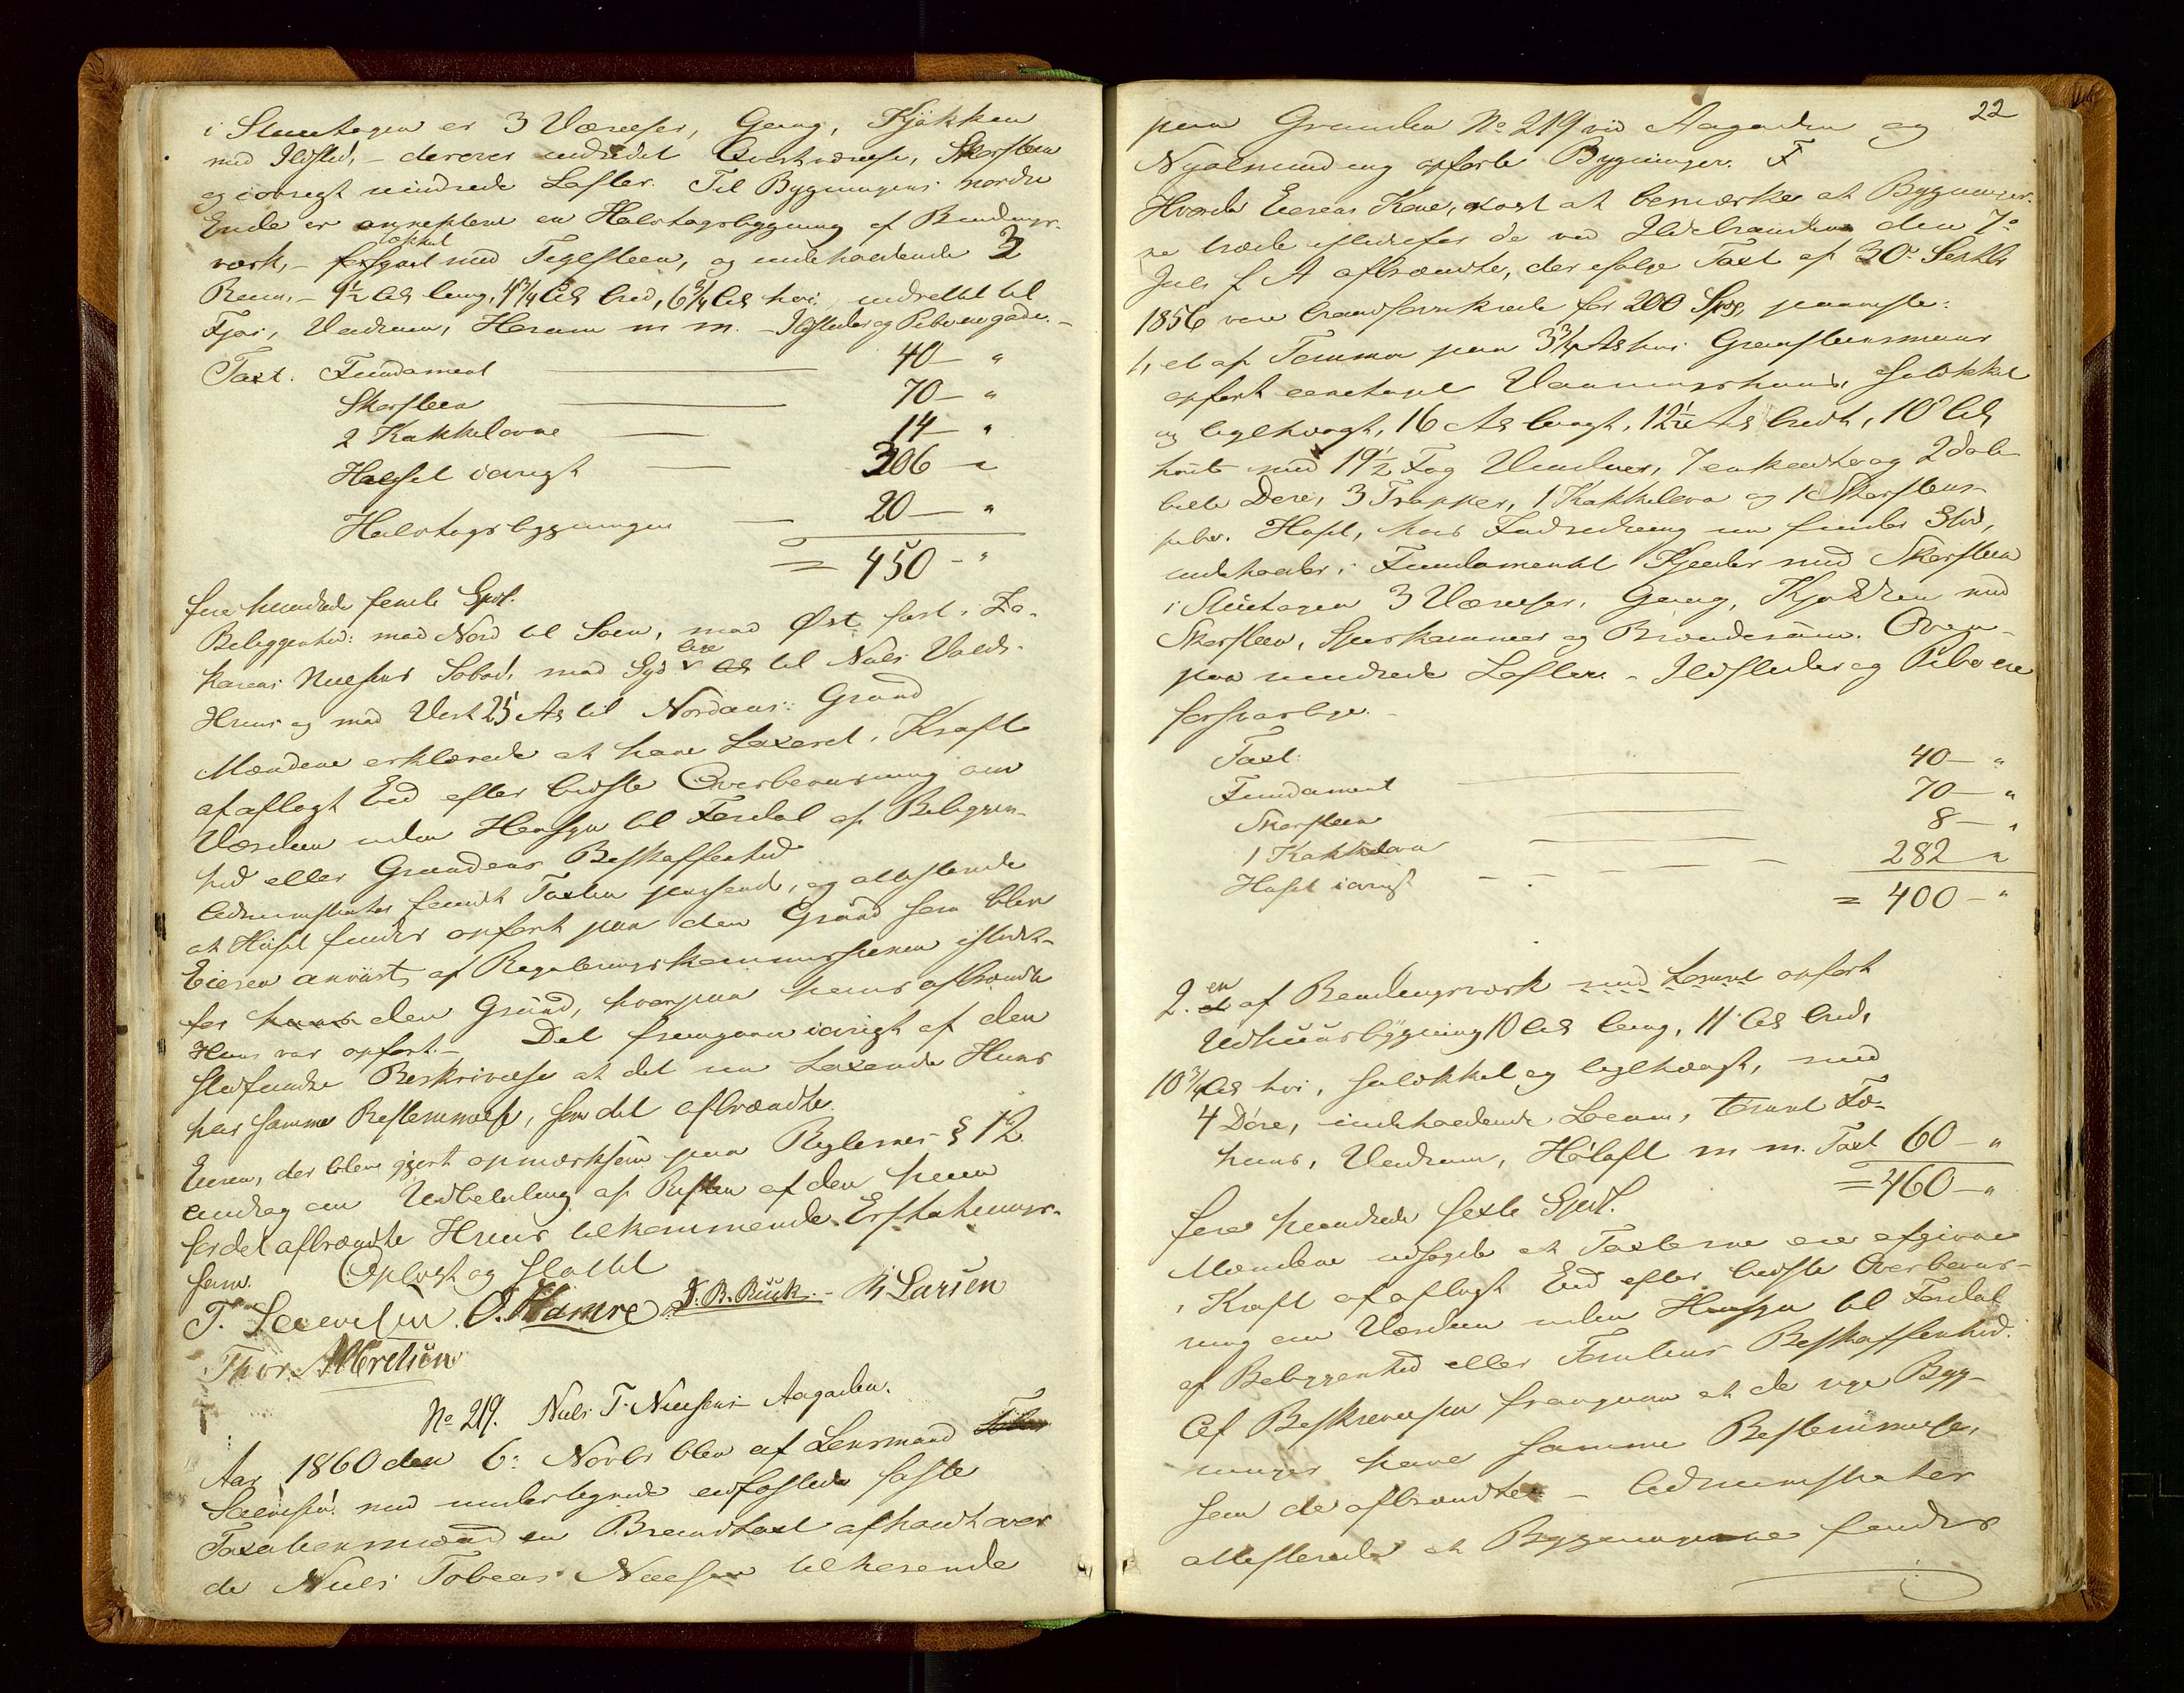 i Stueetagen er 3 Værelser, Gang, Kjøkken
med Ildsted, - derover indredet Qvistværelse, Skorsteen
og iøvrigt uindrede Lofter. Til Bygningens nordre
Ende er annekteret en Halvtagsbygning af Bindings-
værk, - med Tegelsteen, og indeholdende 3
Rum, - 9½ Al lang, 4¾ Al bred, 6¼ Al høi, indrettet til
Fjøs, Vedrum, Høram m m. - Ildsteder og Piber ere gode. -
Taxt. Fundament 40 - "
Skorsteen 70 - "
2 Kakkelovne 14 - "
Huset iøvrigt 306 - "
Halvtagsbygningen 20 - "
= 450 - "
fire hundrede femti Spd.
Beliggenhed: mod Nord til Søen, mod Øst fast i Za-
karias Nielsens Søbod, mod Syd til Niels Valds
Huus og mod Vest 25 Al til Nordaas: Grund
Mændene erklærede at have taxeret i Kraft
af aflagt Ed efter bedste Overbeviisning om
Værdien uden Hensyn til Fordel af Beliggen-
hed eller Grundens Beskaffenhed
Administrator fandt Taxten passende, og attesterede
at Huset findes opført paa den Grund som blev
Eieren anviist af Reguleringskommissionen istedet-
for den Grund, hvorpaa hans afbrændte
Huus var opført. - Det fremgaar iøvrigt af den
stedfundne Beskrivelse at det nu taxerede Huus
har samme Bestemmelse, som det afbrændte.
Eieren, der blev gjort opmærksom paa Reglernes § 12
androg om Udbetaling af Resten af den ham
for det afbrændte Huus tilkommende Erstatnings-
sum. Oplæst og sluttet
T. Sørensen. O. Hamre J. B. Buck. - N Larsen
Thor. Albretsen
No 219. Niels T. Nielsens Aagarden.
Aar 1860 den 6: Novbr blev af Lensmand
Sørensen med undertegnede edfæstede faste
Taxationsmænd en Brandtaxt afholdt over
de Niels Tobias Nielsen tilhørende
22
paa Grunden No 219 ved Aagarden og
opførte Bygninger.
Hvorda Eierens Kone, at bemærke at Bygninger-
ne træde istedetfor de ved Ildebranden den 7de
Juli f A afbrændte, der ifølge Taxt af 30te Septbr
1856 vare brandforsikrede for 200 Spd,
1, et af Tømmer paa 3¾ Al høi Graasteensmuur
opført eenetages Vaaningshuus, panelet
og teglhængt, 16 Al langt, 12½ Al bredt, 10 Al
høit med 19½ Fag Vinduer, 7 enkelte og 2 dob-
belte Døre, 3 Trapper, 1 Kakkelovn og 1 Skorsteens-
pibe. Huset, hvis Indredning nu finder Sted,
indeholder i Fundamentet Kjelder med Skorsteen
i Stueetagen 3 Værelser, Gang, Kjøkken med
Skorsteen, Spiskammer og Brænderum. Oven-
paa uindrede Lofter. - Ildsteder og Piber ere
forsvarlige. -
Taxt:
Fundament 40 - "
Skorsteen 70 - "
1 Kakkelovn 8 - "
Huset iøvrigt 282 "
= 400 - "
2. en af Bindingsværk med Tømret opført
Udhuusbygning 10 Al lang, 11 Al bred,
10¾ Al høi, og teglhængt, med
4 Døre, indeholdende Løerum, tømret Fæ-
huus, Vedrum, Høloft m m. Taxt 60 - "
= 460 - "
fire hundrede sexti Spd.
Mændene udsagde at Taxterne ere afgivne
i Kraft af aflagt Ed efter bedste Overbeviis-
ning om Værdien uden Hensyn til Fordel
af Beliggenhed eller Tomtens Beskaffenhed.
Af Beskrivelsen fremgaar at de nye Byg-
ninger have samme Bestemmelse,
som de afbrændte. - Administrator
attesterede at Bygningerne findes